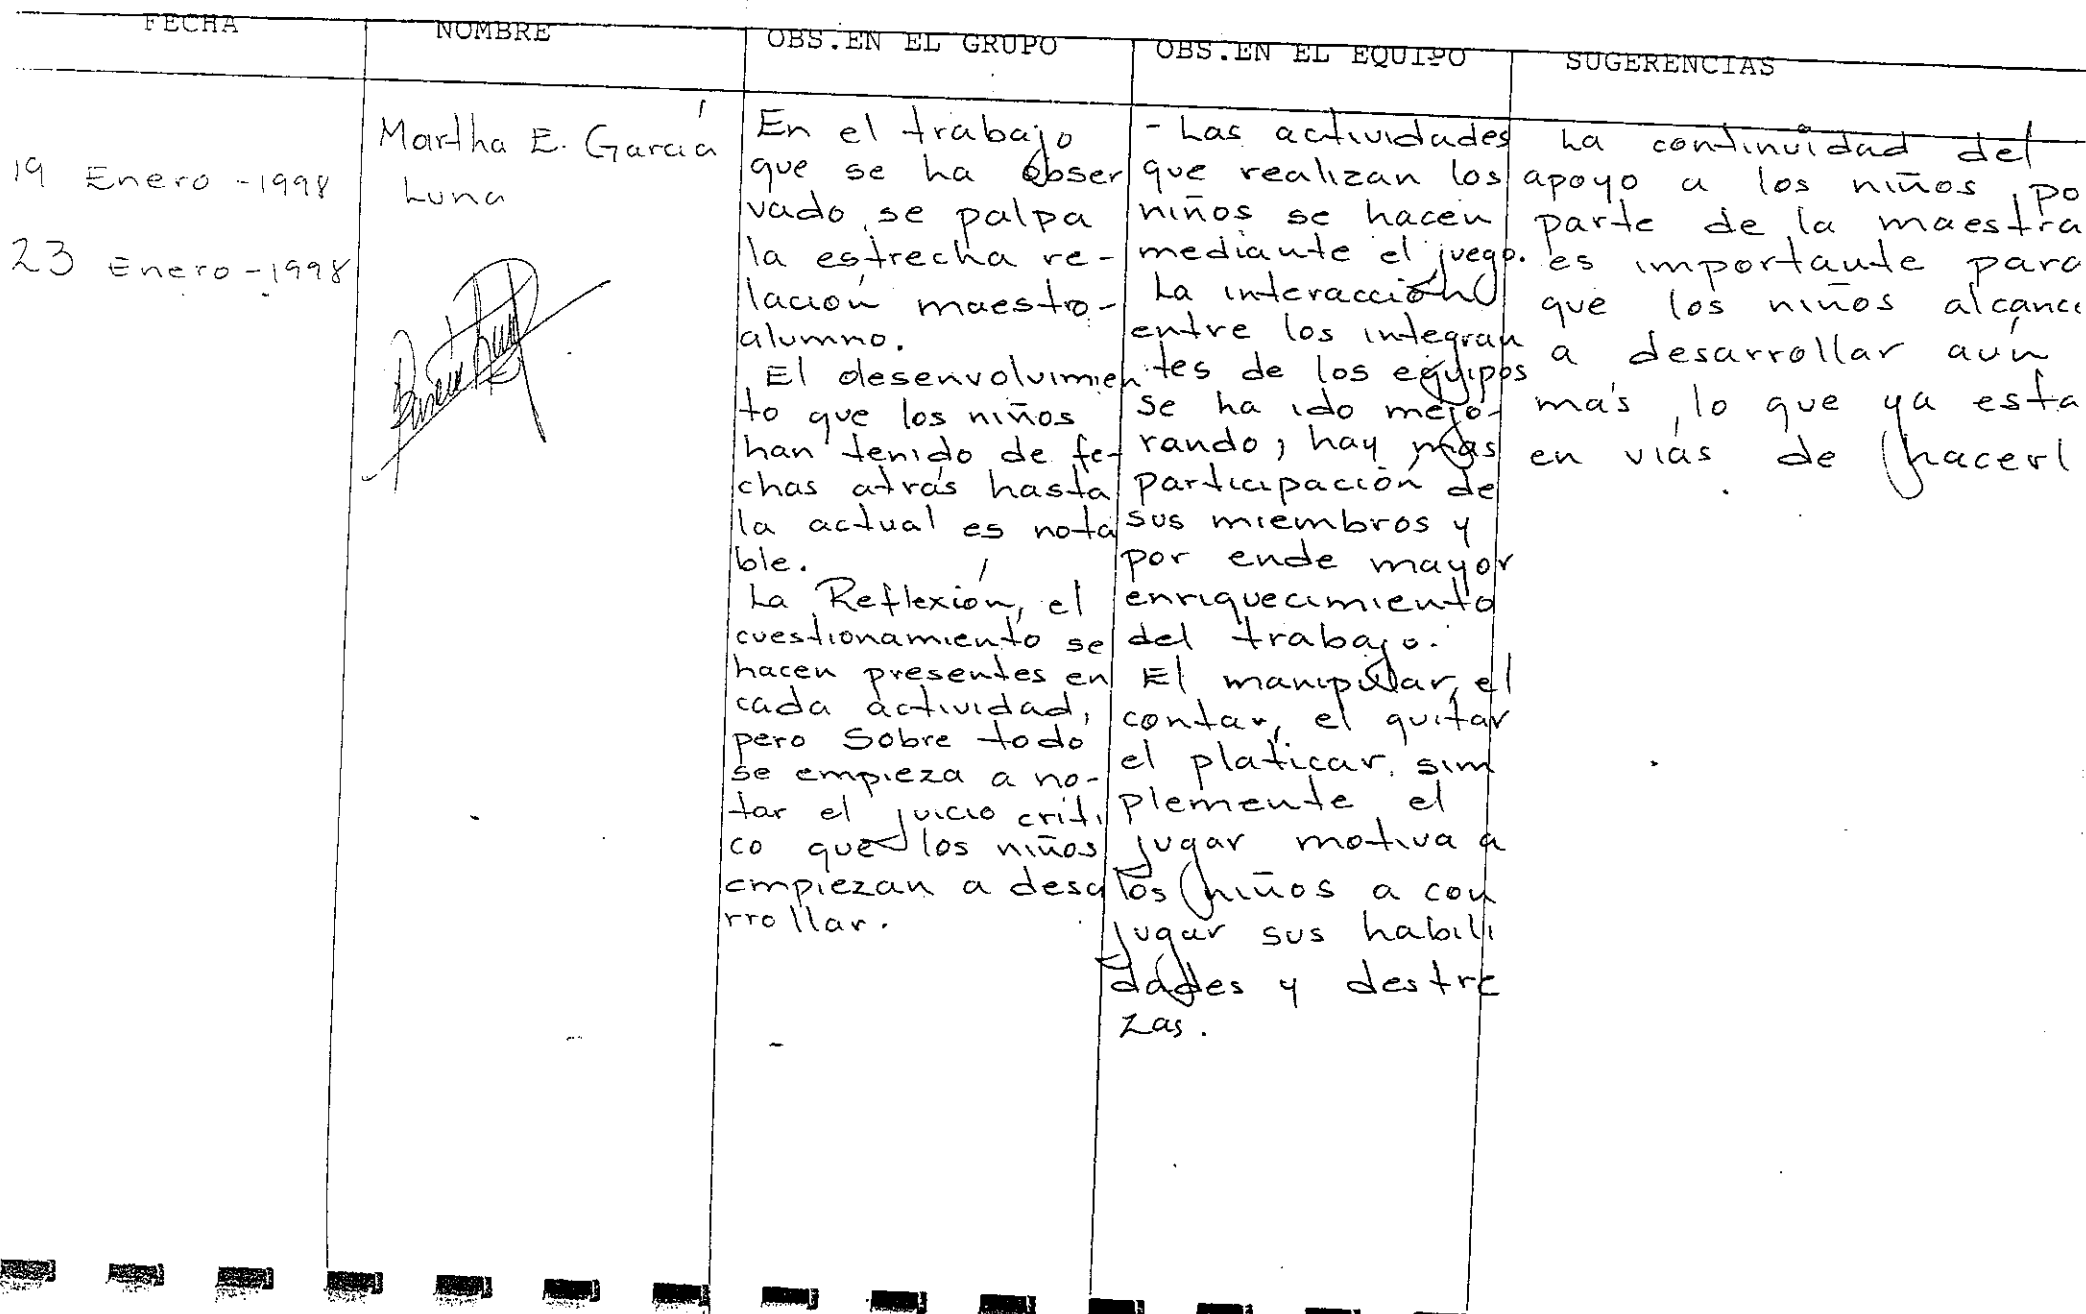 FECHA
NOMBRE
OBS.EN EL GRUPO
OBS.EN EL EQUIPO
SUGERENCIAS
19 Enero -1998
23 Enero -1998
Martha E. García
Luna
En el trabajo
que se ha obser
vado, se palpa
la estrecha re-
lación maestro-
alumno.
El desenvolvimien
to que los niños
han tenido de fe-
chas atrás hasta
la actual es nota
ble.
La Reflexión, el
cuestionamiento se
hacen presentes en
cada actividad,
pero Sobre todo
se empieza a no-
tar el juicio críti
co que los niños
empiezan a desa
rrollar.
- Las actividades
que realizan los
niños se hacen
mediante el juego.
La interacción
entre los integran
tes de los equipos
se ha ido mejo-
rando, hay más
participación de
sus miembros y
por ende mayor
enriquecimiento
del trabajo.
El manipular, el
contar, el quitar
el platicar, sim
plemente el
jugar motiva a
los niños a con
jugar sus habili
dades y destre
zas.
La continuidad del
apoyo a los niños, po
parte de la maestra
es importante para
que los niños alcance
a desarrollar aún
más, lo que ya esta
en vías de hacerl